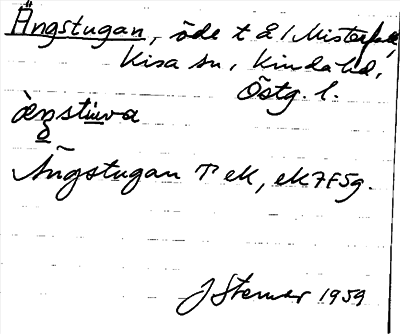 Ängstugan, öde t å 1 Misterfall,
Kisa sn, Kinda hd,
Östg. l.
ängstuva
Ängstugan T ek, ek 7F5g.
J Sterner 1959